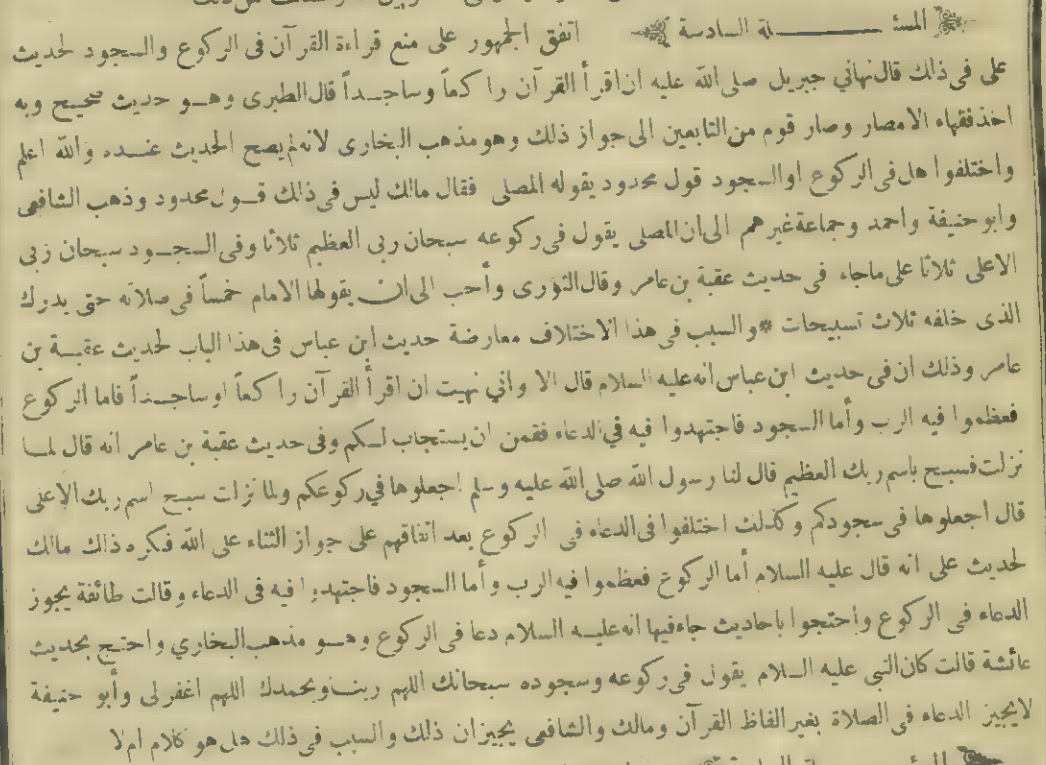 المسئلة السادسة اتفق الجمهور على منع قراءة القرآن فى الركوع والسجود لحديث
على فى ذلك قال نهاني جبريل صلى الله عليه ان اقرأ القرآن راكعاً وساجداً قال الطبرى وهو حديث صحيح وبه
اخذ فقهاء الامصار وصار قوم من التابعين الى جواز ذلك وهو مذهب البخارى لانه لم يصح الحديث عنده والله اعلم
واختلفوا هل فى الركوع او السجود قول محدود يقوله المصلى فقال مالك ليس فى ذلك قول محدود وذهب الشافعى
وابو حنيفة واحمد وجماعة غيرهم الى ان المصلى يقول فى ركوعه سبحان ربى العظيم ثلاثا وفى السجود سبحان ربى
الاعلى ثلاثا على ماجاء فى حديث عقبة بن عامر وقال الثورى وأحب الى ان يقولها الامام خمساً فى صلاته حتى يدرك
الذى خلفه ثلاث تسبيحات * والسبب فى هذا الاختلاف معارضة حديث ابن عباس فى هذا الباب لحديث عقبة بن
عامر وذلك ان فى حديث ابن عباس انه عليه السلام قال الا واني نهيت ان اقرأ القرآن راكعاً اوساجداً فاما الركوع
فعظموا فيه الرب وأما السجود فاجتهدوا فيه في الدعاء فقمن ان يستجاب لكم وفى حديث عقبة بن عامر انه قال لما
نزلت فسبح باسم ربك العظيم قال لنا رسول الله صلى الله عليه وسلم اجعلوها في ركوعكم ولما نزلت سبح اسم ربك الاعلى
قال اجعلوها فى سجودكم وكذلك اختلفوا فى الدعاء فى الركوع بعد اتفاقهم على جواز الثناء على الله فكره ذلك مالك
لحديث على انه قال عليه السلام أما الركوع فعظموا فيه الرب وأما السجود فاجتهدوا فيه فى الدعاء وقالت طائفة يجوز
الدعاء فى الركوع واحتجوا باحاديث جاء فيها انه عليه السلام دعا فى الركوع وهو مذهب البخاري واحتج بحديث
عائشة قالت كان النبى عليه السلام يقول فى ركوعه وسجوده سبحانك اللهم ربنا وبحمدك اللهم اغفرلى وأبو حنيفة
لايجيز الدعاء فى الصلاة بغير الفاظ القرآن ومالك والشافعى يجيزان ذلك والسبب فى ذلك هل هو كلام ام لا